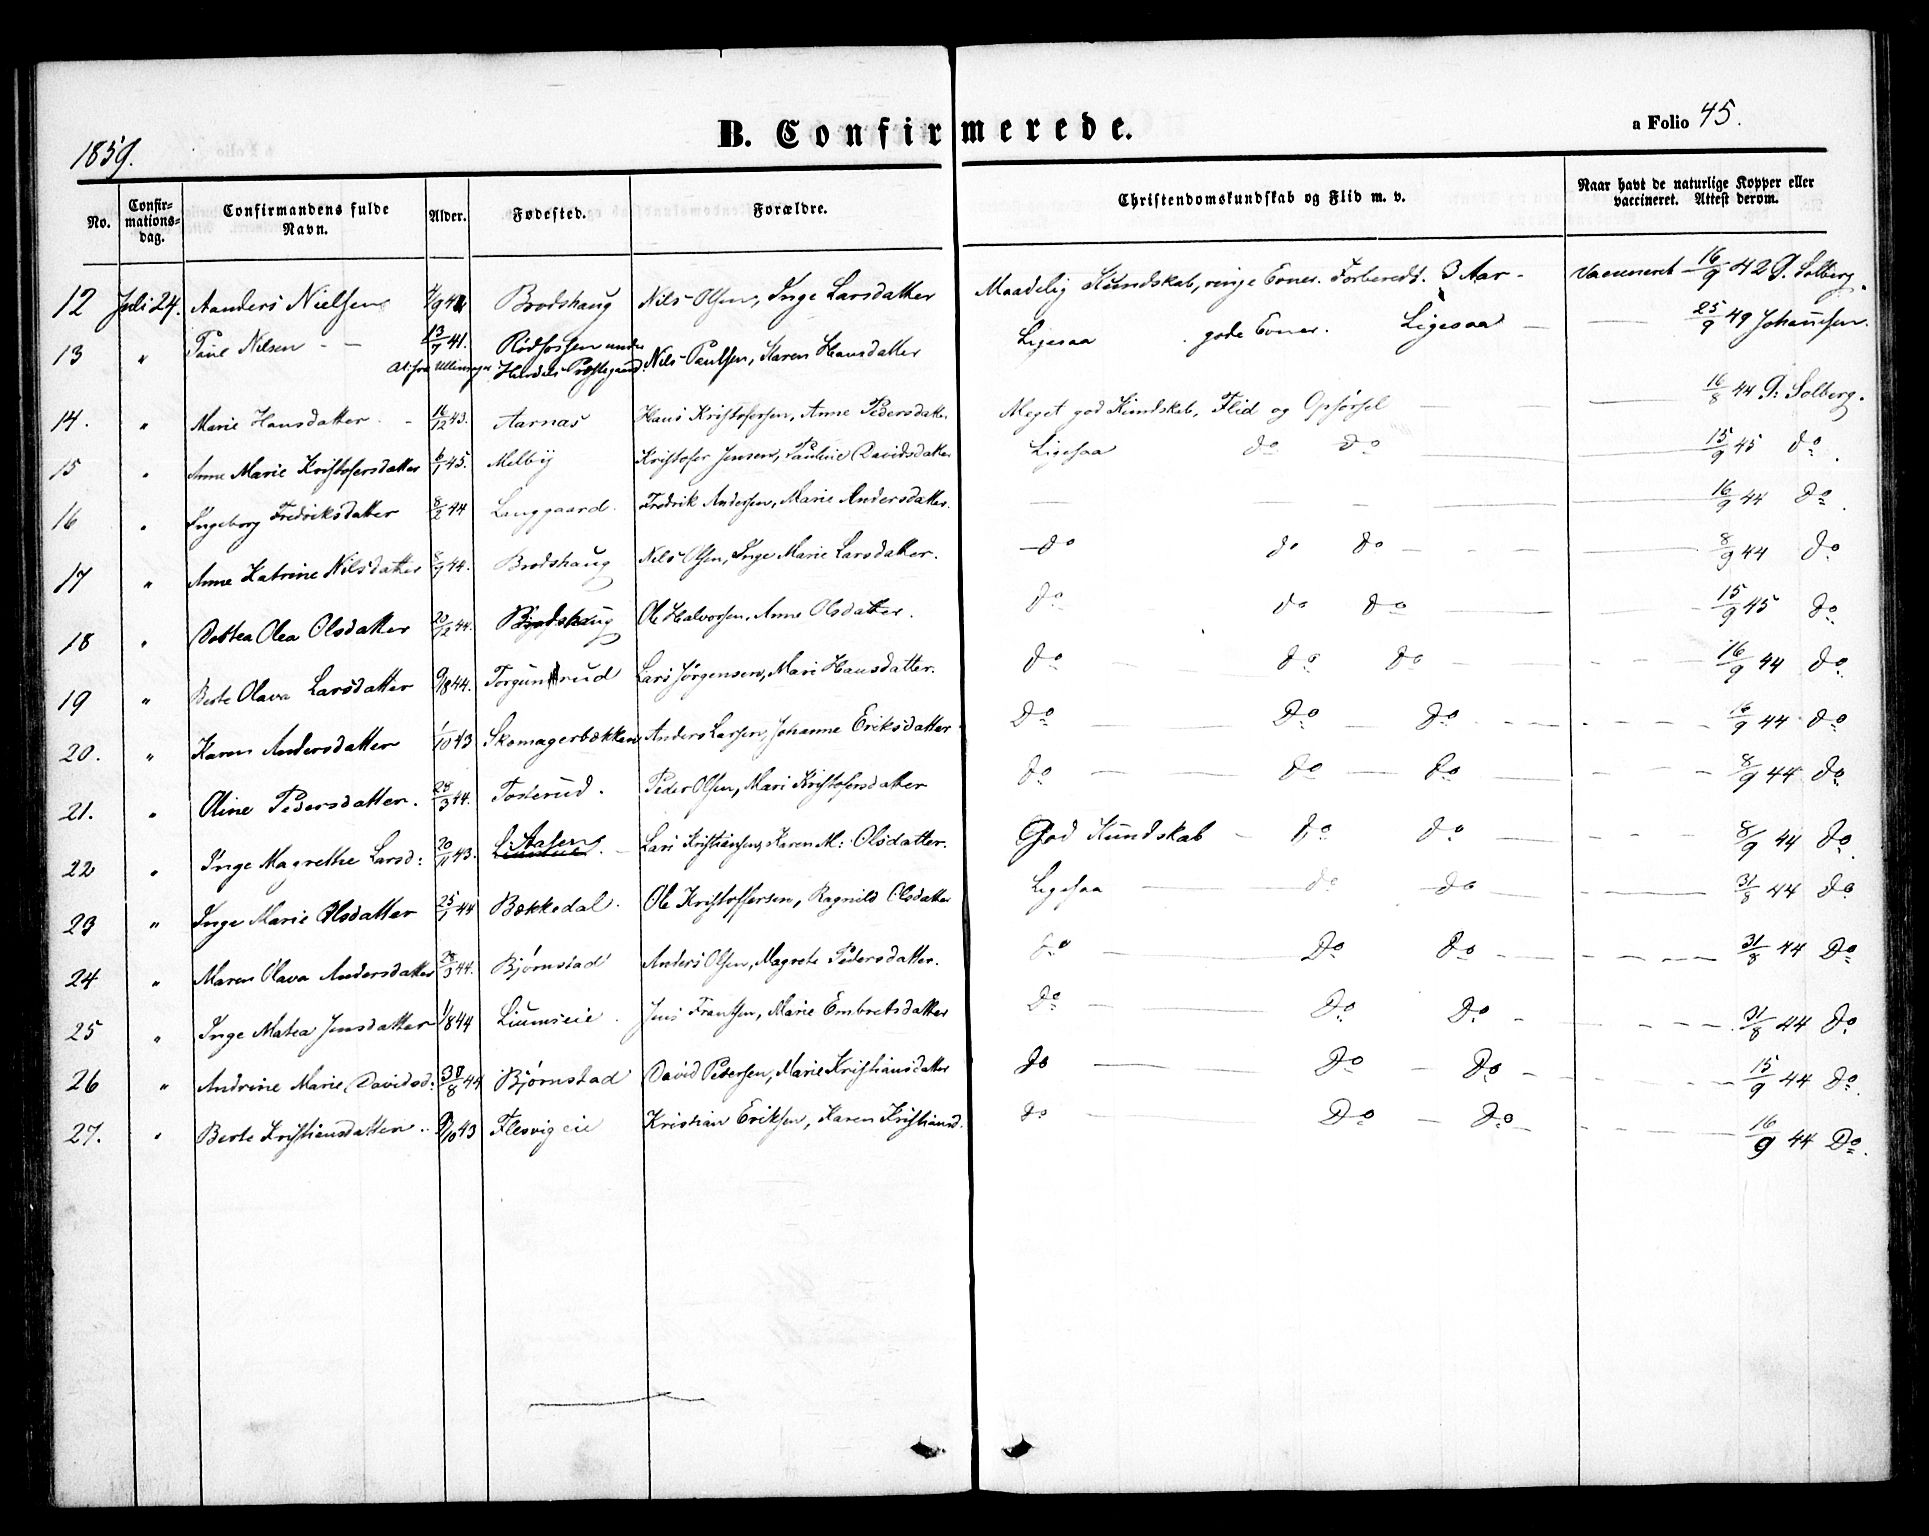 1859.
B. Confirmerede.
a Folio 45.
No. Confirmationsdag. Confirmandens fulde Navn. Alder. Fødested. Forældre. Christendomskundskab og Flid m. v. Naar havt de naturlige Kopper eller vaccineret. Attest derom.
12 Juli 24. Aanders Nielsen Brodshaug Nils Olsen, Inge Larsdatter Maadelig Kundskab, ringe Evner. Forberedt. 3 Aar - Vaccineret 16/9 42 G. Solberg.
13 " Paul Nilsen - — 13/7 41. Rødfossen under Nils Paulsen, Karen Hansdatter Ligesaa . gode Evner. Ligesaa — — 25/9 49 Johansen.
At: fra Ullensager Hurdals Præstegaard.
14. " Marie Hansdatter 16/12 43. Aarnæs Hans Kristofersen, Anne Pedersdatter Meget god Kundskab, Flid og Opførsel 16/8 44 G: Solberg.
15 " Anne Marie Kristofersdatter 6/1 45. Melby Kristofer Jensen, Pauline Davidsdatter Ligesaa do do 15/9 45 do.
16 " Ingeborg Fredriksdatter 8/2 44 Langgaard. Fredrik Andersen, Marie Andersdatter. — — — 16/9 44 Do.
17 " Anne Katrine Nilsdatter 8/9 44. Brodshaug Nils Olsen, Inge Marie Larsdatter. — do do do 8/9 44 do
18 " Dortea Olea Olsdatter 20/12 44. Brodshaug Ole Halvorsen, Anne Olsdatter. do do do 15/9 45 do
19 " Berte Olava Larsdatter 9/8 44. Torgunrud Lars Jørgensen, Mari Hansdatter. do do do 16/9 44 do
20. " Karen Andersdatter 1/10 43 Skomagerbækken Anders Larsen, Johanne Eriksdatter Do Do do 16/9 44 do
21. " Oline Pedersdatter. 28/3 44. Tosterud. Peder Olsen, Mari Kristofersdatter do do do 8/9 44 do
22 " Inge Magrethe Larsd: 20/11 43. Aasen Lars Kristiansen, Karen M: Olsdatter. God Kundskab - do do 8/9 44 do.
23 " Inge Marie Olsdatter 25/1 44 Bækkedal. Ole Kristoffersen, Ragnild Olsdatter Ligesaa do do 31/8 44 do
24 " Maren Olava Andersdatter 28/3 44. Bjørnstad Anders Olsen, Magrete Pedersdatter. do Do do 31/8 44 Do
25 " Inge Matea Jensdatter 1/8 44 Liumseie. Jens Frantsen, Marie Embretsdatter Do Do Do 31/8 44 do
26 " Andrine Marie Davidsd: 30/8 44 Bjørnstad David Petersen, Marie Kristiansdatter do Do Do 15/9 44 do.
27. " Berte Kristiansdatter 9/10 43 Flesvigeie Kristian Eriksen, Karen Kristiansd. do Do do 16/9 44 Do.